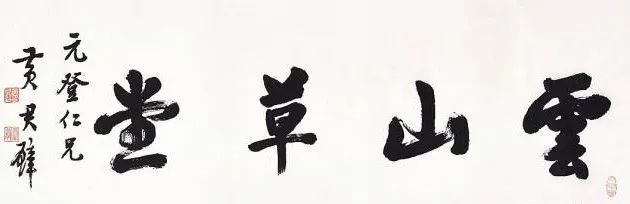 雲山草堂
元登仁兄
黄君璧